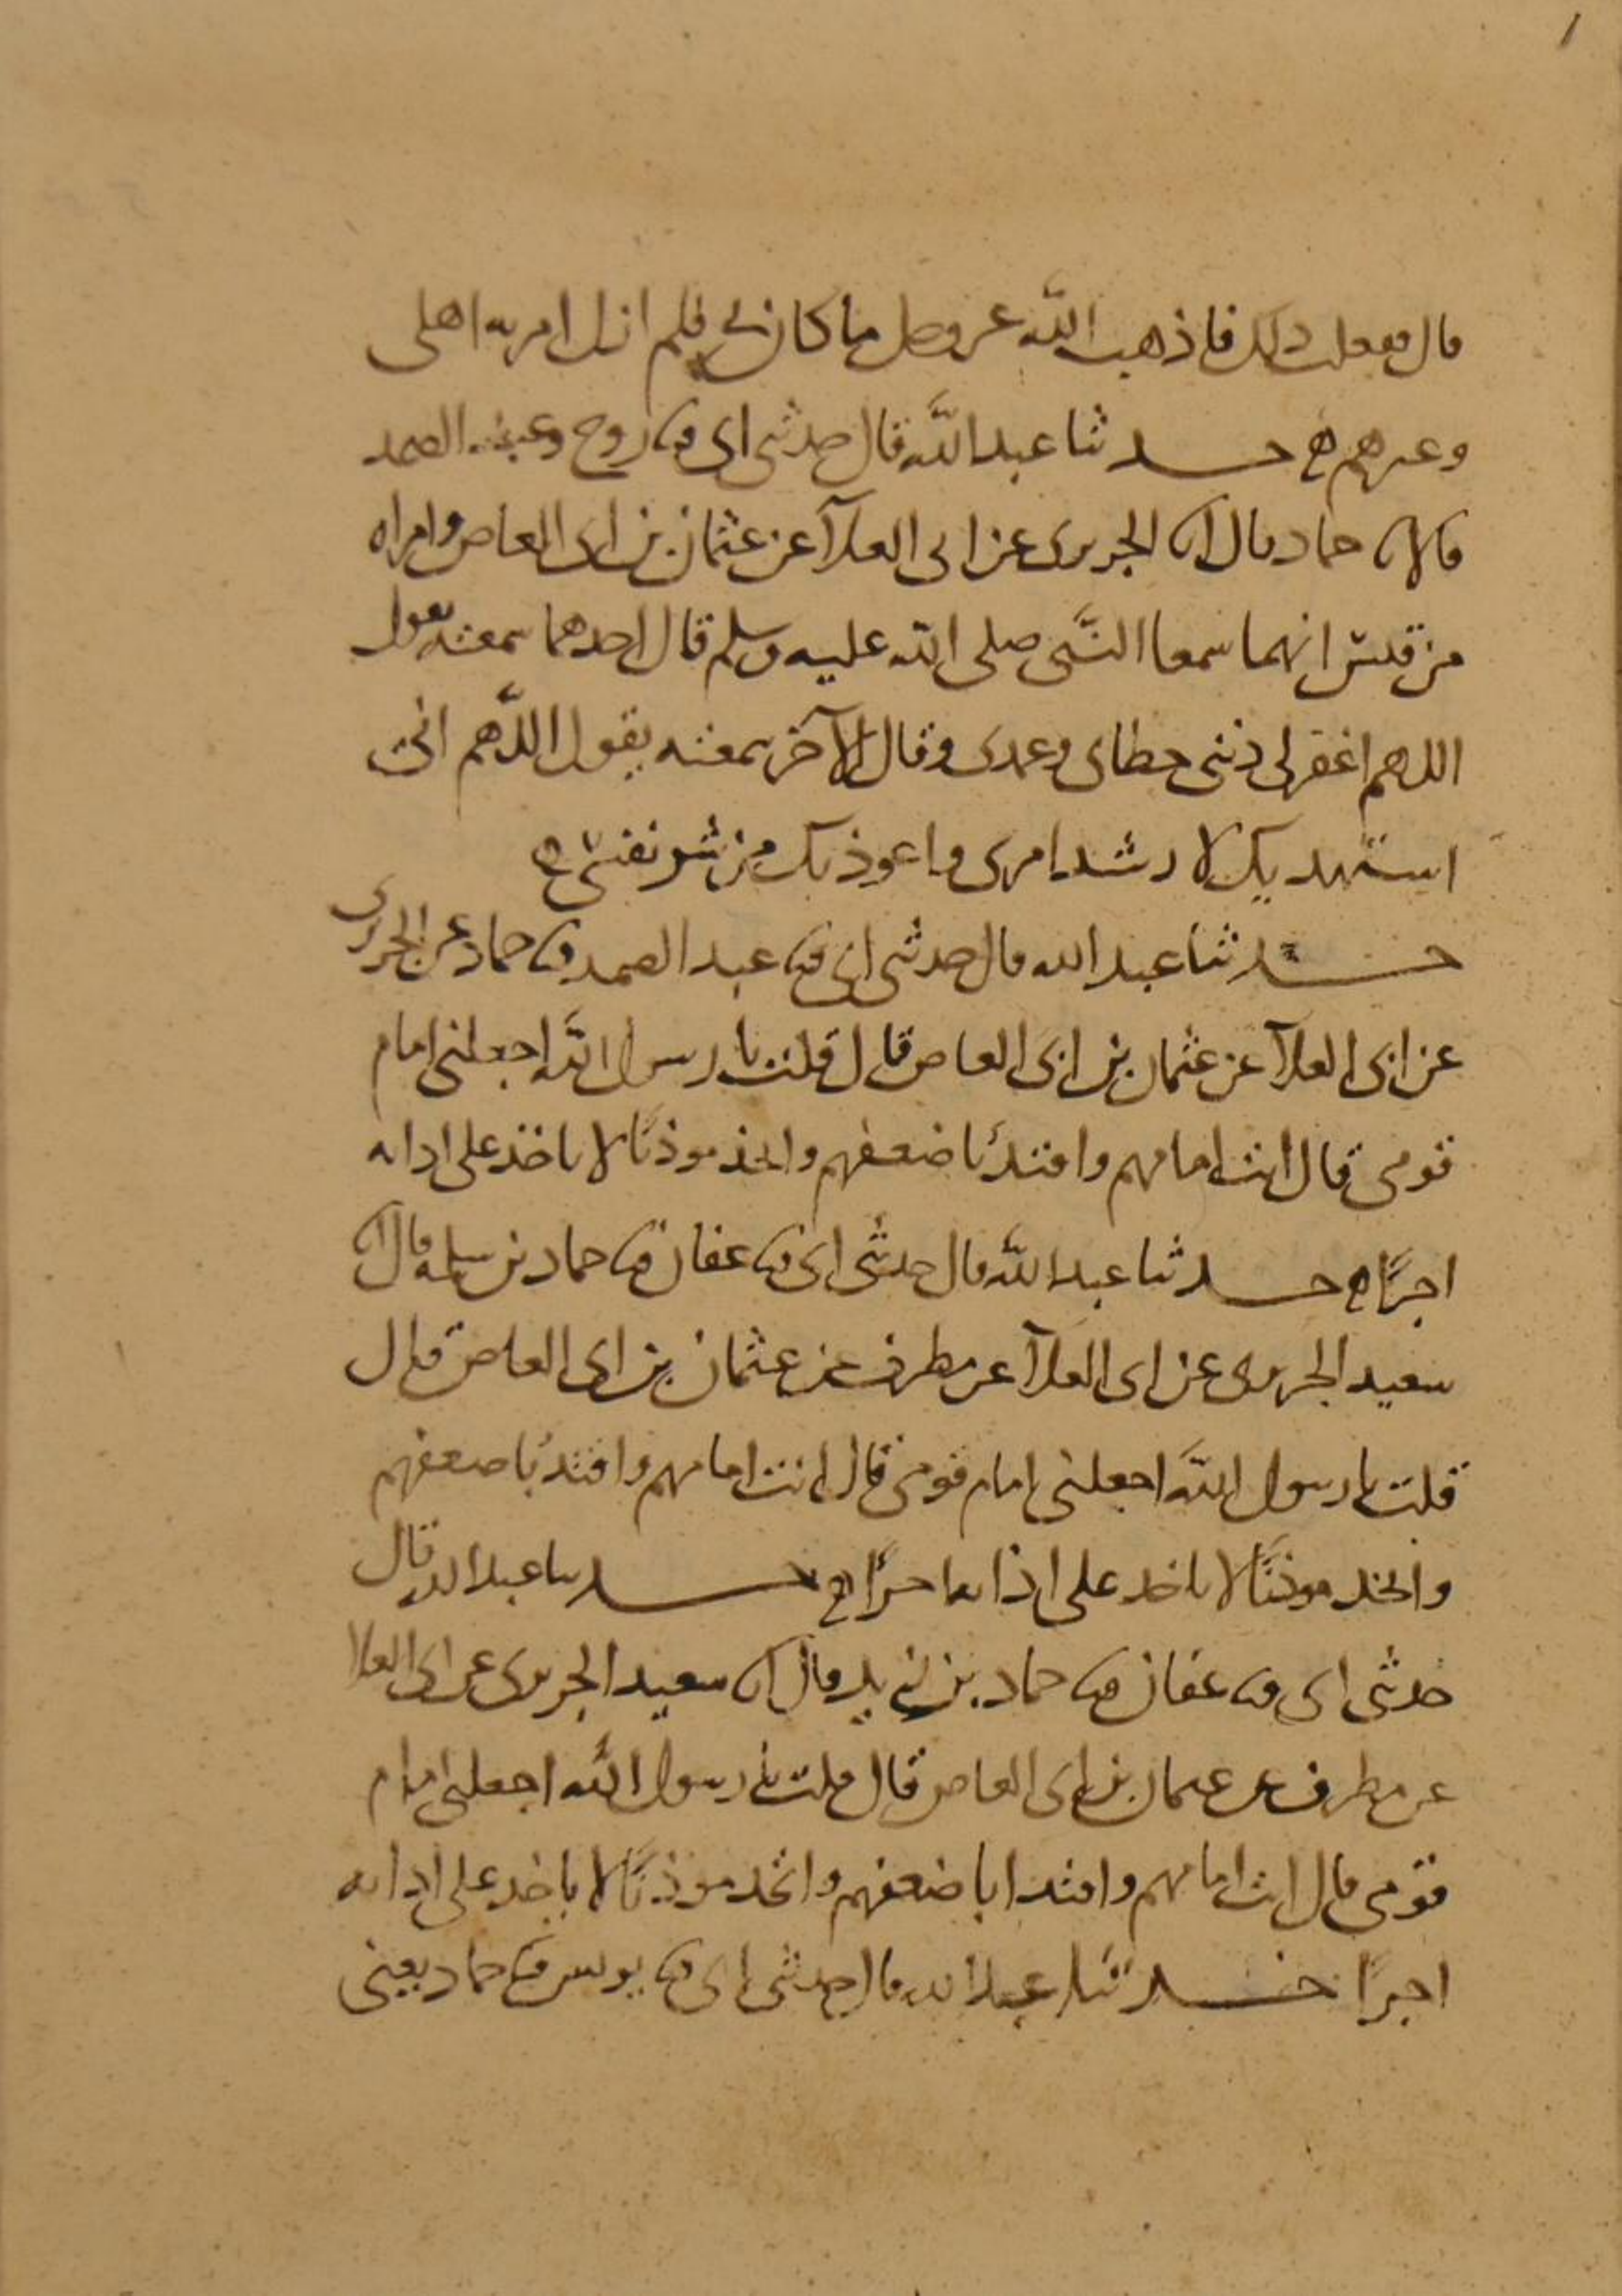 قال ففعلت ذلك فاذهب الله عز وجل ما كان بي فلم ازل امر به اهلي
وغيرهم ه حدثنا عبد الله قال حدثني ابي ثنا روح وعبد الصمد
قالا ثنا حماد قال انا الجريري عن ابي العلآ عن عثمان بن ابي العاص وامراه
من قيس انهما سمعا النبي صلى الله عليه وسلم قال احدهما سمعته يقول
اللهم اغفر لي ذنبي خطاي وعمدي وقال الآخر سمعته يقول اللهم اني
استهديك لارشد امري واعوذ بك من شر نفسي ه
حدثنا عبد الله قال حدثني ابي ثنا عبد الصمد ثنا حماد عن الجريري
عن ابي العلآ عن عثمان بن ابي العاص قال قلت يا رسول الله اجعلني امام
قومي قال انت امامهم واقتد باضعفهم واتخذ موذنًا لا ياخذ على اذانه
اجرًا ه حدثنا عبد الله قال حدثني ابي ثنا عفان ثنا حماد بن سلمه قال انا
سعيد الجريري عن ابي العلآ عن مطرف عن عثمان بن ابي العاص قال
قلت يا رسول الله اجعلني امام قومي قال انت امامهم واقتد باضعفهم
واتخذ موذنًا لا ياخذ على اذانه اجرًا ه حدثنا عبد الله قال
حدثني ابي ثنا عفان ثنا حماد بن زيد قال انا سعيد الجريري عن ابي العلا
عن مطرف عن عثمان بن ابي العاص قال قلت يا رسول الله اجعلني امام
قومي قال انت امامهم واقتدا باضعفهم واتخذ موذنًا لا ياخذ على اذانه
اجرًا حدثنا عبد الله قال حدثني ابي ثنا يونس ثنا حماد يعني